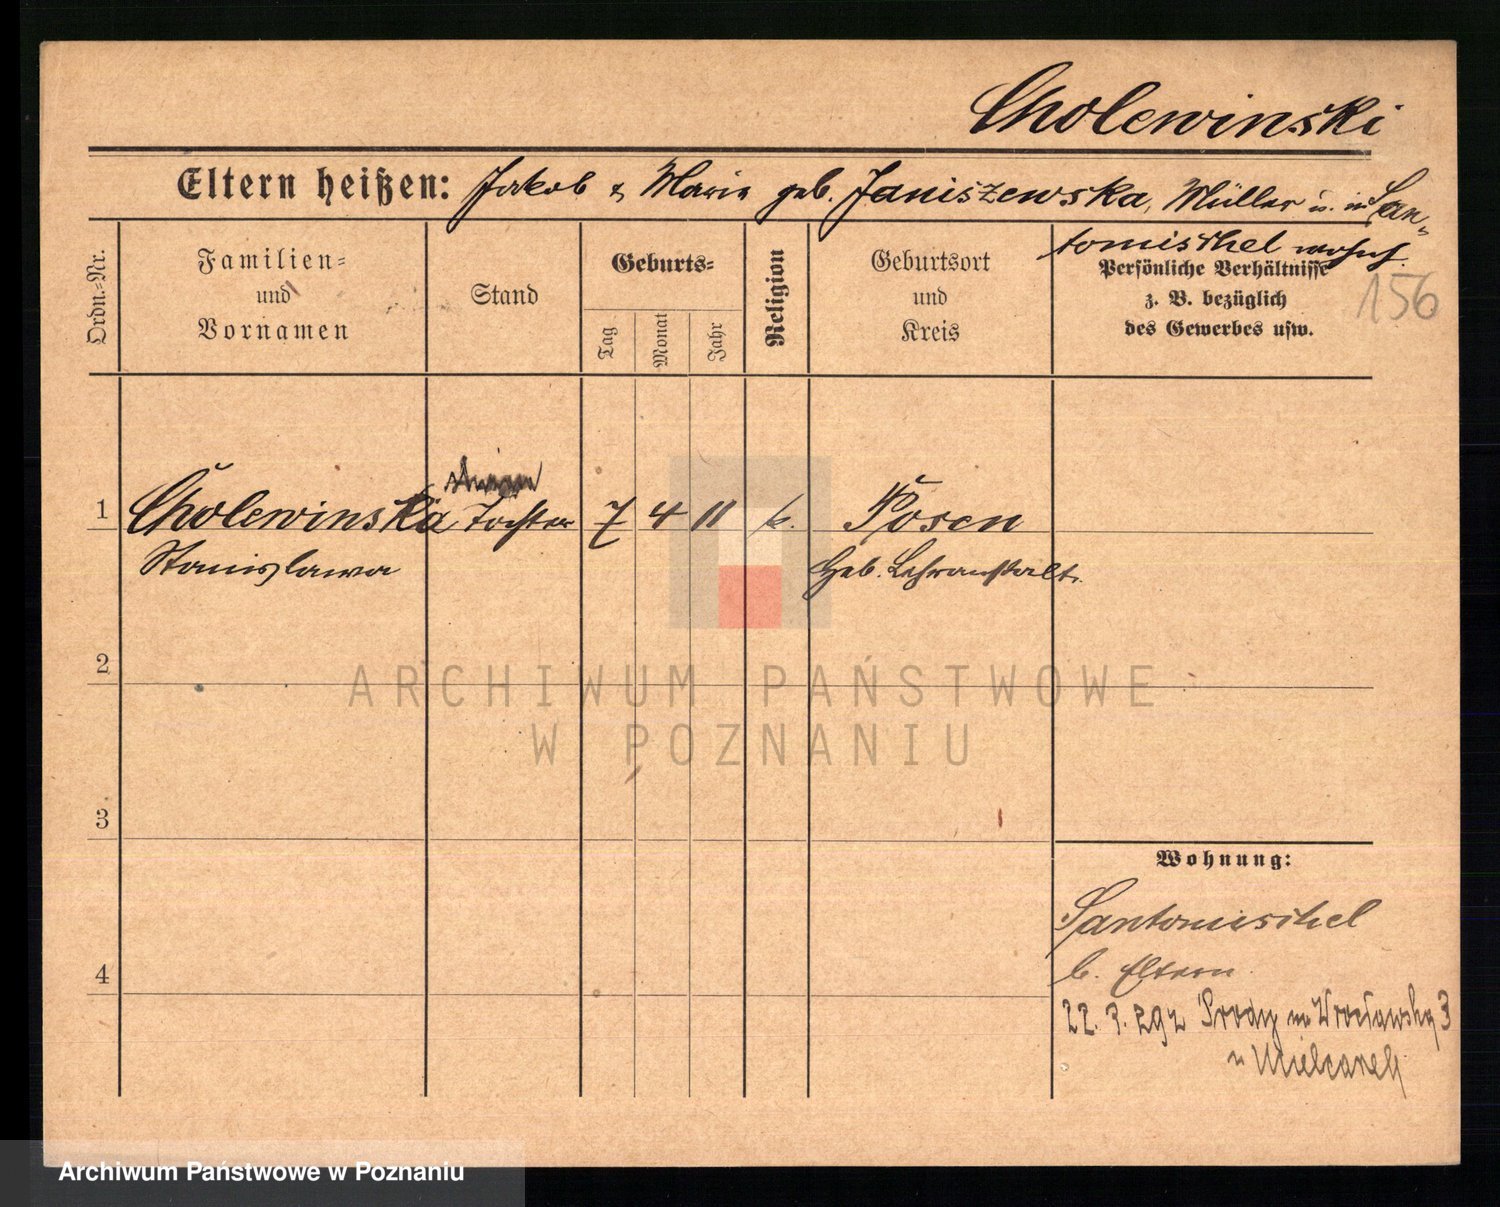 Cholewinski
Eltern heißen: Jakob & Marie geb. Janiszewska, Müller u. in San-
tomischel wohnh.
Ordn.-Nr.
Familien-
und
Vornamen
Stand
Geburts-
Tag
Monat
Jahr
Religion
Geburtsort
und
Kreis
Persönliche Verhältnisse
z. B. bezüglich
des Gewerbes usw.
156
1 Cholewinska Tochter 7 4 11 k. Posen
Stanislawa Heb. Lehranstalt.
2
ARCHIWUM PAŃSTWOWE
W POZNANIU
3
4
Wohnung:
Santomischel
b. Eltern
22. 3. 29 z Środy na Wrocławską 3
u Mielcarek
Archiwum Państwowe w Poznaniu